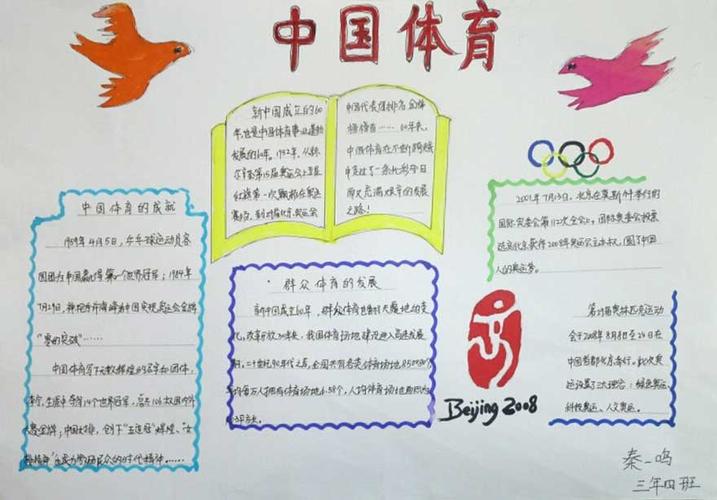 中国体育
新中国成立的60
年,也是中国体育事业蓬勃
发展的60年。1952年,从赫
尔辛基第15届奥运会上五星
红旗第一次飘扬在奥运
赛场,到
中国代表团排名金牌
榜榜首……60年来,
中国体育在不断跨越
中走过了一条光彩夺目
而又充满艰辛的发展
之路!
中国体育的成就
1959年4月5日,乒乓球运动员容
国团为中国赢得第一个世界冠军;1984年
7月29日,神枪手许海峰为中国实现奥运会金牌
“零的突破”……
中国体育
夺得14个世界冠军,
惠金牌;中国女排,创下“五连冠”辉煌、“女
时代精神……
群众体育的发展
新中国成立60年,群众体育也有了天翻地覆的变
化,改革开放30年来,我国体育场地建设进入高速发展
期。二十世纪90年代之后,全国共有各类体育场地85万
均每万人拥有体育场地6.58个,人均体育场地面积
平方米。
2001年7月13日,北京在莫斯科举行的
国际奥委会第112次全会上,国际奥委会投票
选定北京获得2008年奥运会主办权,圆了中国
人的奥运梦。
第29届奥林匹克运动
会于2008年8月8日至24日在
中国首都北京举行。此次奥
运会有三大理念:绿色奥运、
科技奥运、人文奥运。
Beijing 2008
秦一鸣
三年四班